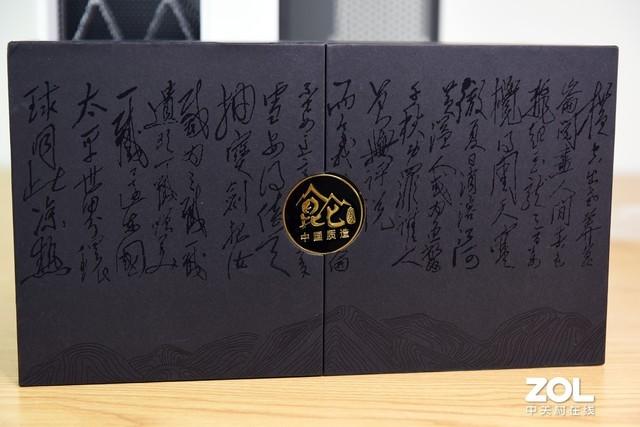 横空出世莽昆
崙阅尽人间春色
飞起玉龙三百万
搅得周天寒
彻夏日消溶江河
横溢人或为鱼鳖
千秋功罪谁人
曾与评说
而今我
雪安得倚天
抽宝剑把汝
裁为三截一截
遗欧一截赠美
一截还东国
太平世界环
球同此凉热
昆仑
中国质造
ZOL
中关村在线